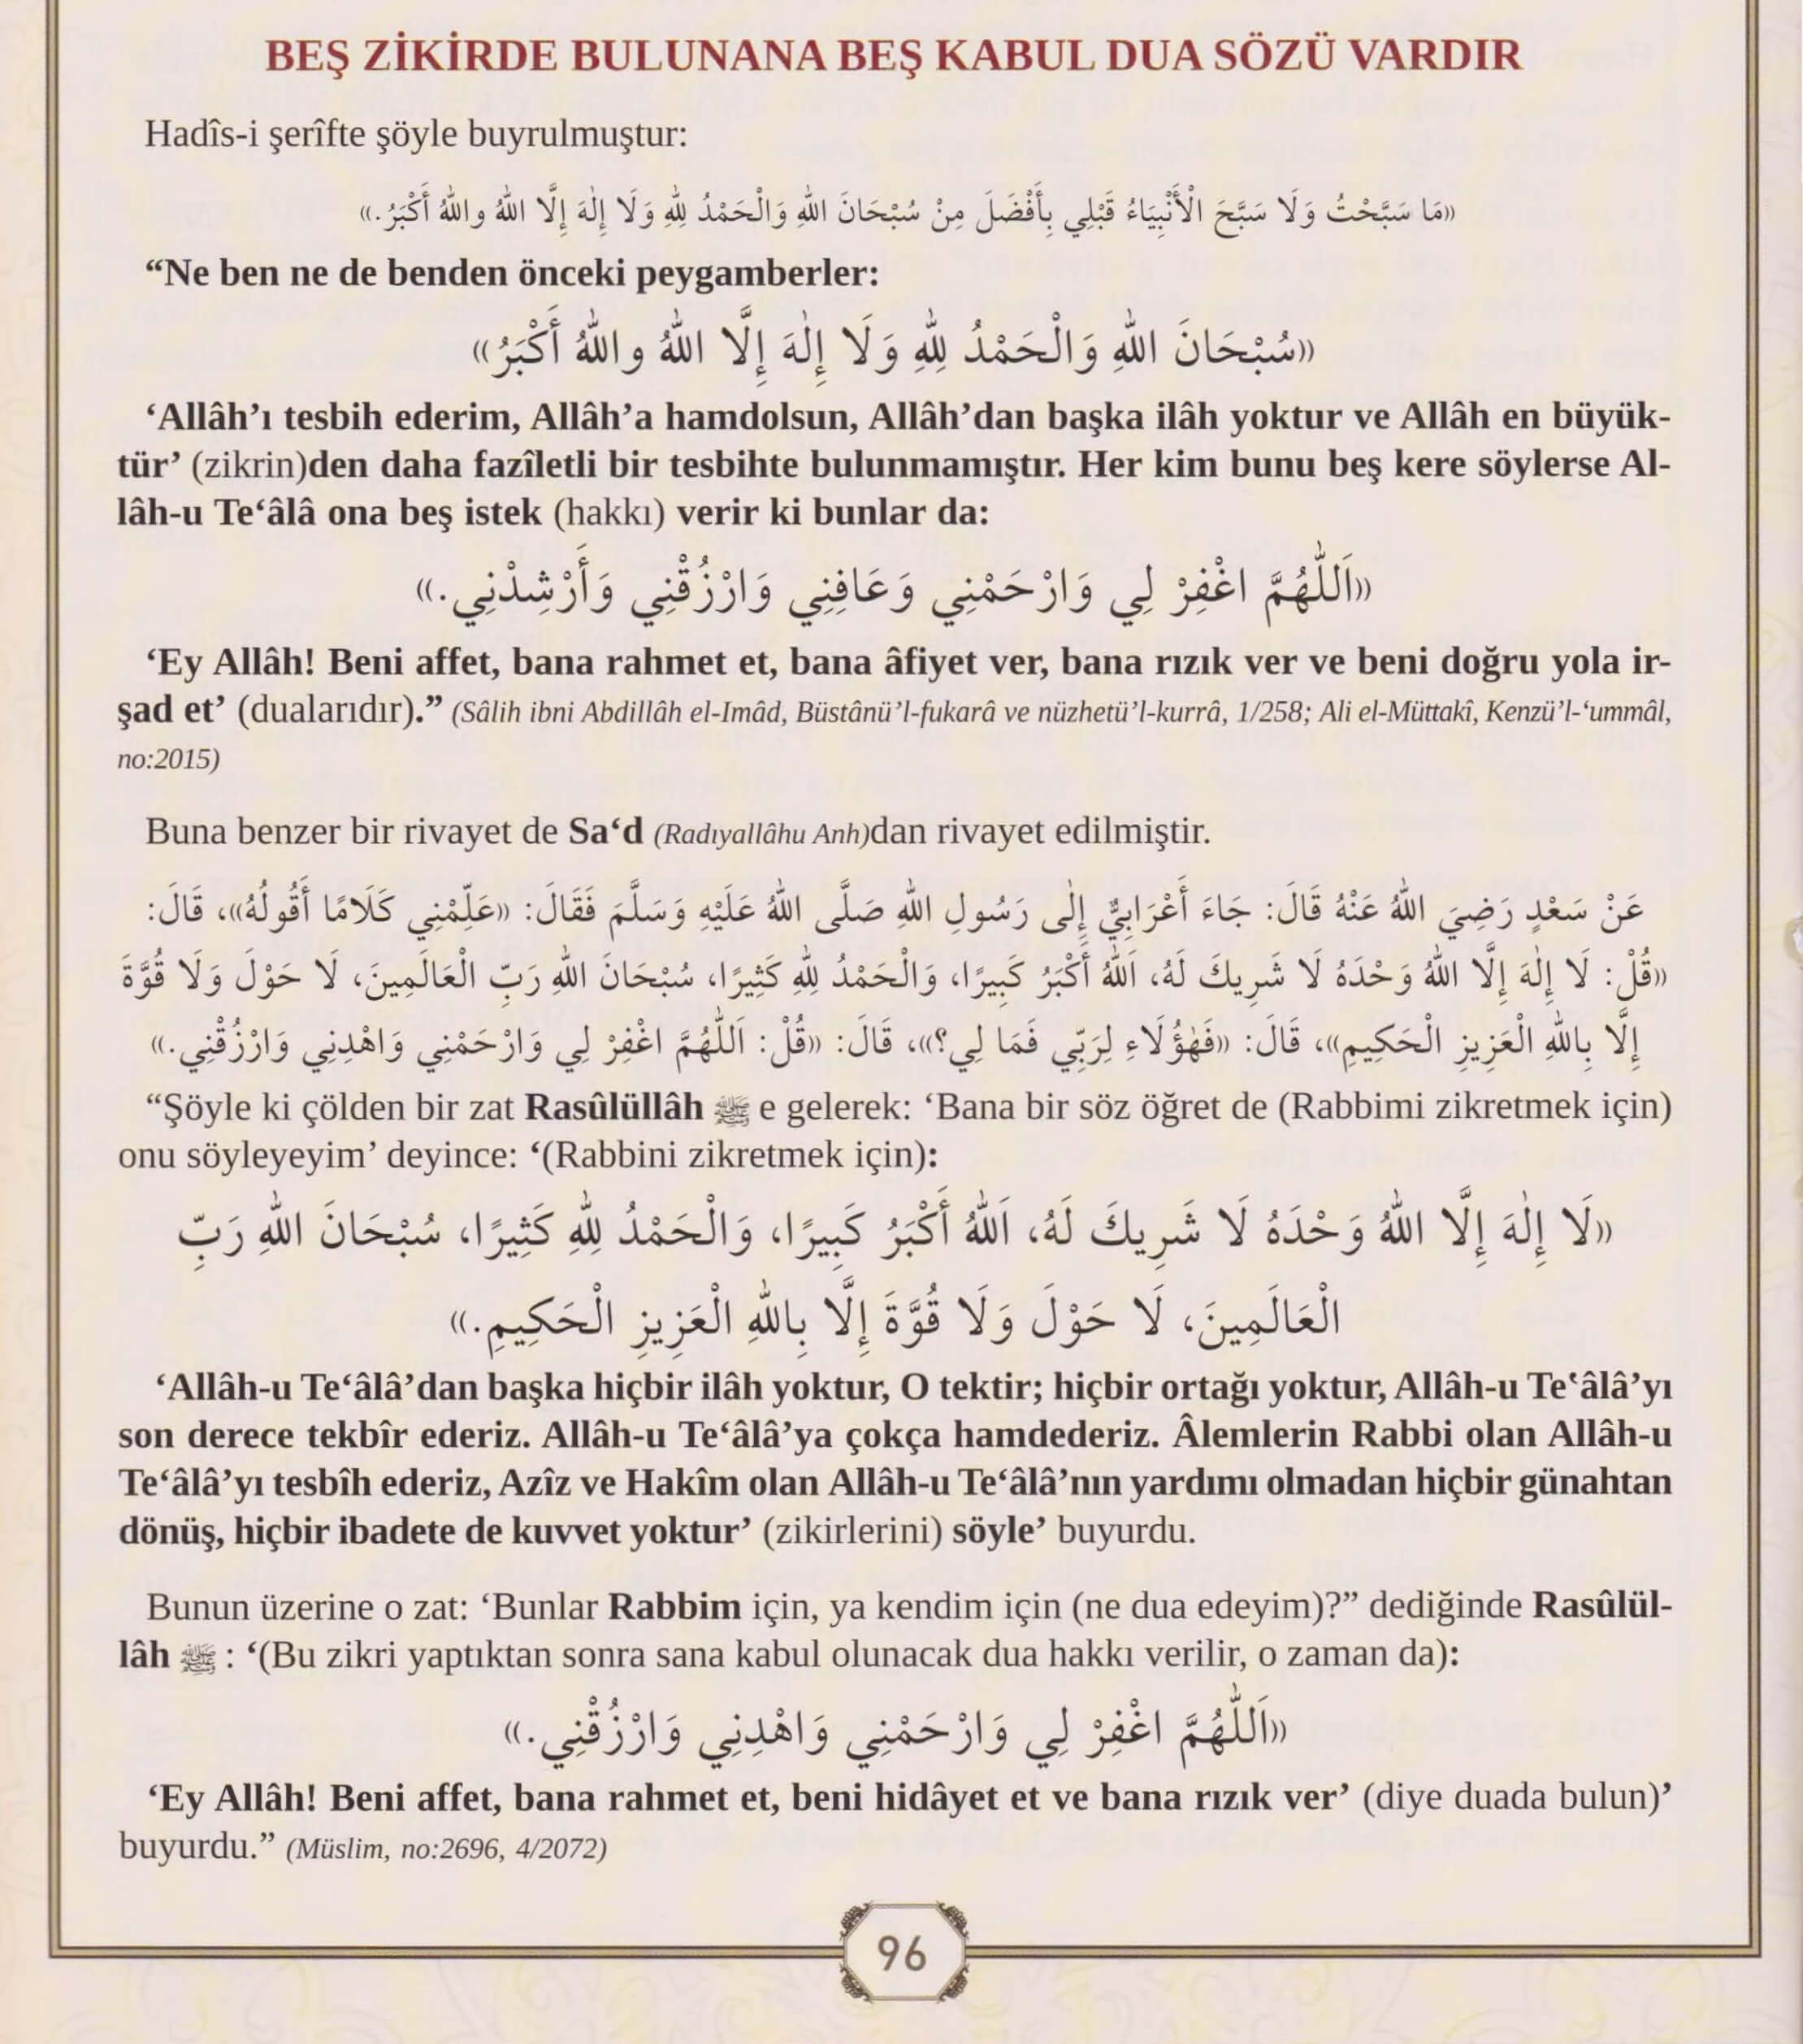 BEŞ ZİKİRDE BULUNANA BEŞ KABUL DUA SÖZÜ VARDIR
Hadîs-i şerîfte şöyle buyrulmuştur:
«مَا سَبَّحْتُ وَلَا سَبَّحَ الْأَنْبِيَاءُ قَبْلِي بِأَفْضَلَ مِنْ سُبْحَانَ اللهِ وَالْحَمْدُ لِلهِ وَلَا إِلٰهَ إِلَّا اللهُ واللهُ أَكْبَرُ.»
“Ne ben ne de benden önceki peygamberler:
«سُبْحَانَ اللهِ وَالْحَمْدُ لِلهِ وَلَا إِلٰهَ إِلَّا اللهُ واللهُ أَكْبَرُ»
‘Allâh’ı tesbih ederim, Allâh’a hamdolsun, Allâh’dan başka ilâh yoktur ve Allâh en büyük-
tür’ (zikrin)den daha fazîletli bir tesbihte bulunmamıştır. Her kim bunu beş kere söylerse Al-
lâh-u Te‘âlâ ona beş istek (hakkı) verir ki bunlar da:
«اَللّٰهُمَّ اغْفِرْ لِي وَارْحَمْنِي وَعَافِنِي وَارْزُقْنِي وَأَرْشِدْنِي.»
‘Ey Allâh! Beni affet, bana rahmet et, bana âfiyet ver, bana rızık ver ve beni doğru yola ir-
şad et’ (dualarıdır).” (Sâlih ibni Abdillâh el-Imâd, Büstânü’l-fukarâ ve nüzhetü’l-kurrâ, 1/258; Ali el-Müttakî, Kenzü’l-‘ummâl,
no:2015)
Buna benzer bir rivayet de Sa‘d (Radıyallâhu Anh)dan rivayet edilmiştir.
عَنْ سَعْدٍ رَضِيَ اللهُ عَنْهُ قَالَ: جَاءَ أَعْرَابِيٌّ إِلٰى رَسُولِ اللهِ صَلَّى اللهُ عَلَيْهِ وَسَلَّمَ فَقَالَ: «عَلِّمْنِي كَلَامًا أَقُولُهُ»، قَالَ:
«قُلْ: لَا إِلٰهَ إِلَّا اللهُ وَحْدَهُ لَا شَرِيكَ لَهُ، اَللهُ أَكْبَرُ كَبِيرًا، وَالْحَمْدُ لِلهِ كَثِيرًا، سُبْحَانَ اللهِ رَبِّ الْعَالَمِينَ، لَا حَوْلَ وَلَا قُوَّةَ
إِلَّا بِاللهِ الْعَزِيزِ الْحَكِيمِ»، قَالَ: «فَهٰؤُلَاءِ لِرَبِّي فَمَا لِي؟»، قَالَ: «قُلْ: اَللّٰهُمَّ اغْفِرْ لِي وَارْحَمْنِي وَاهْدِنِي وَارْزُقْنِي.»
“Şöyle ki çölden bir zat Rasûlüllâh ﷺ e gelerek: ‘Bana bir söz öğret de (Rabbimi zikretmek için)
onu söyleyeyim’ deyince: ‘(Rabbini zikretmek için):
«لَا إِلٰهَ إِلَّا اللهُ وَحْدَهُ لَا شَرِيكَ لَهُ، اَللهُ أَكْبَرُ كَبِيرًا، وَالْحَمْدُ لِلهِ كَثِيرًا، سُبْحَانَ اللهِ رَبِّ
الْعَالَمِينَ، لَا حَوْلَ وَلَا قُوَّةَ إِلَّا بِاللهِ الْعَزِيزِ الْحَكِيمِ.»
‘Allâh-u Te‘âlâ’dan başka hiçbir ilâh yoktur, O tektir; hiçbir ortağı yoktur, Allâh-u Te‘âlâ’yı
son derece tekbîr ederiz. Allâh-u Te‘âlâ’ya çokça hamdederiz. Âlemlerin Rabbi olan Allâh-u
Te‘âlâ’yı tesbîh ederiz, Azîz ve Hakîm olan Allâh-u Te‘âlâ’nın yardımı olmadan hiçbir günahtan
dönüş, hiçbir ibadete de kuvvet yoktur’ (zikirlerini) söyle’ buyurdu.
Bunun üzerine o zat: ‘Bunlar Rabbim için, ya kendim için (ne dua edeyim)?” dediğinde Rasûlül-
lâh ﷺ : ‘(Bu zikri yaptıktan sonra sana kabul olunacak dua hakkı verilir, o zaman da):
«اَللّٰهُمَّ اغْفِرْ لِي وَارْحَمْنِي وَاهْدِنِي وَارْزُقْنِي.»
‘Ey Allâh! Beni affet, bana rahmet et, beni hidâyet et ve bana rızık ver’ (diye duada bulun)’
buyurdu.” (Müslim, no:2696, 4/2072)
96